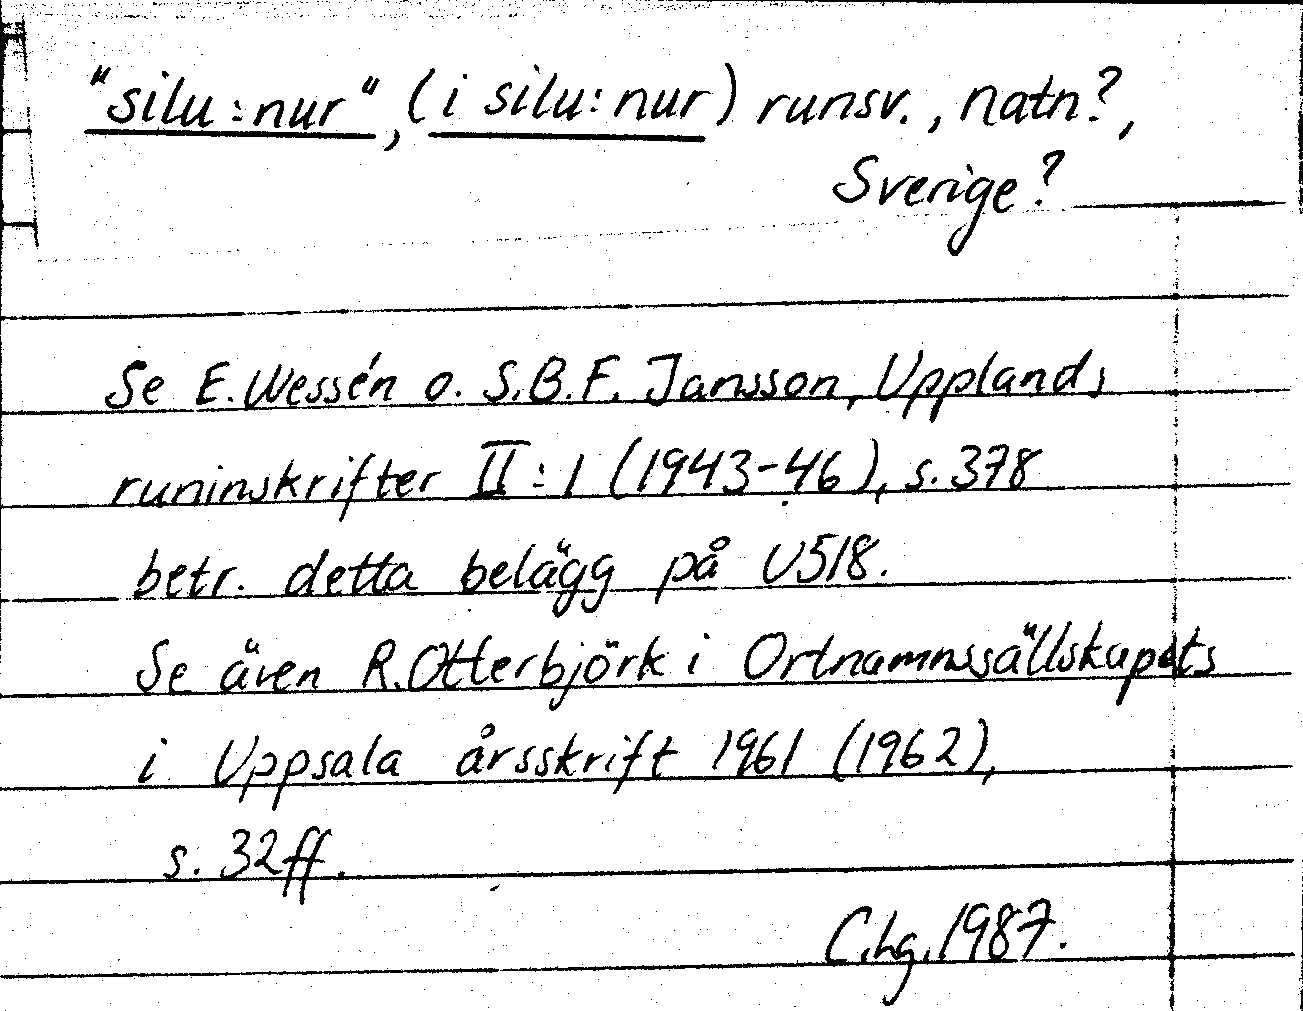 "silu:nur", (i silu:nur) runsv., natn?,
Sverige?
Se E. Wessén o. S.B.F. Jansson, Upplands
runinskrifter II:1 (1943-46), s. 378
betr. detta belägg på U518.
Se även R. Otterbjörk i Ortnamnssällskapets
i Uppsala årsskrift 1961 (1962),
s. 32ff.
C.hg. 1987.